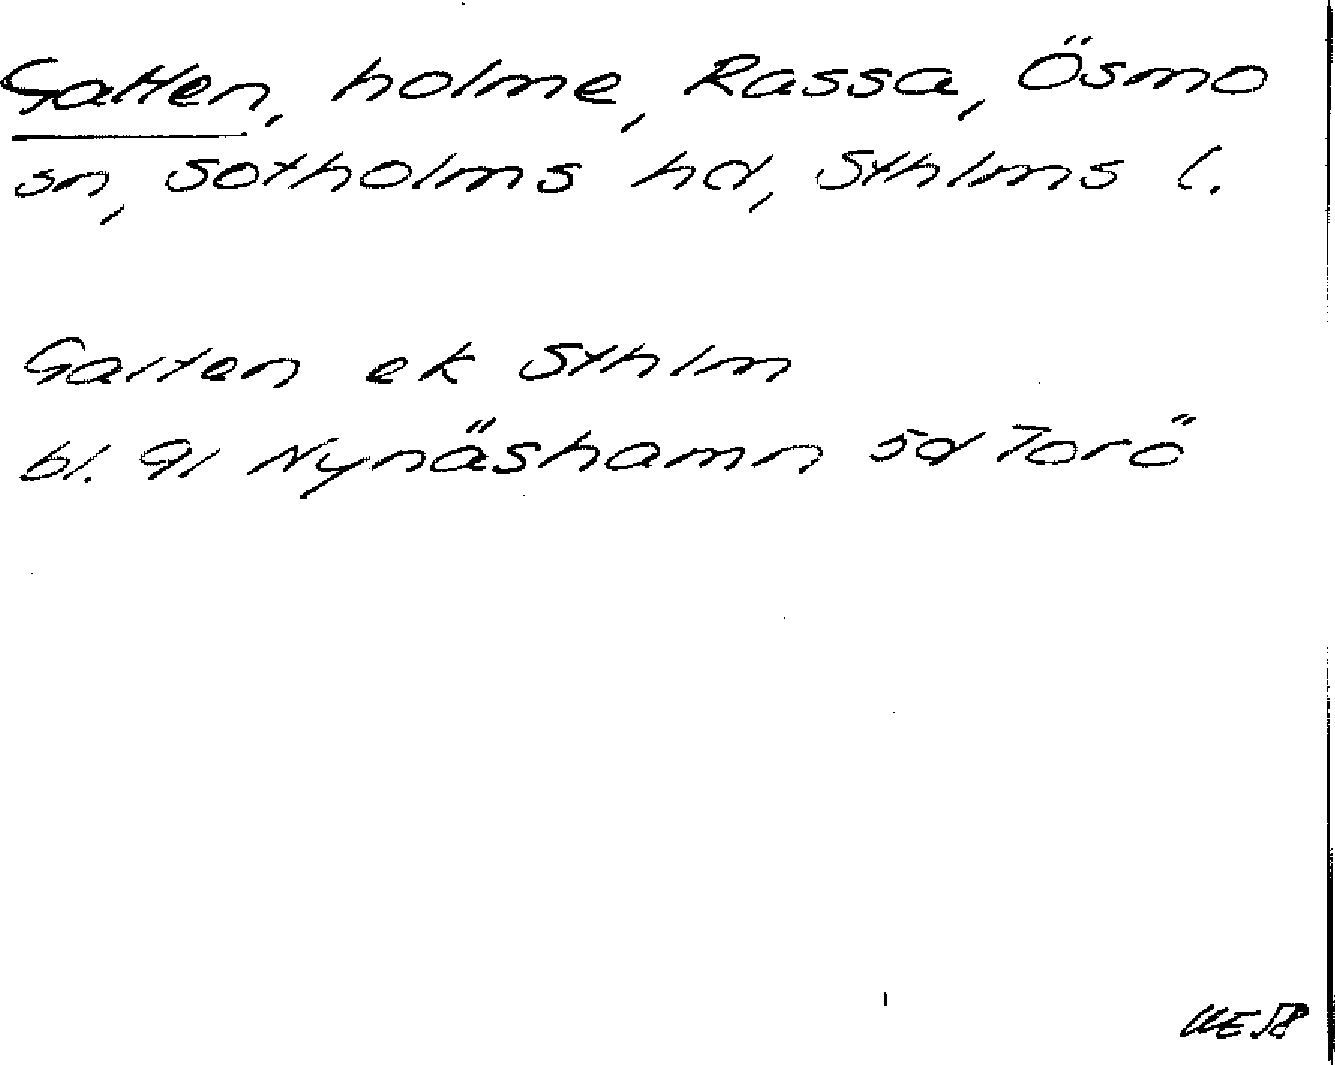 Galten, holme, Rassa, Ösmo
sn, Sotholms hd, Sthlms l.
Galten ek Sthlm
bl. 91 Nynäshamn 5d Torö